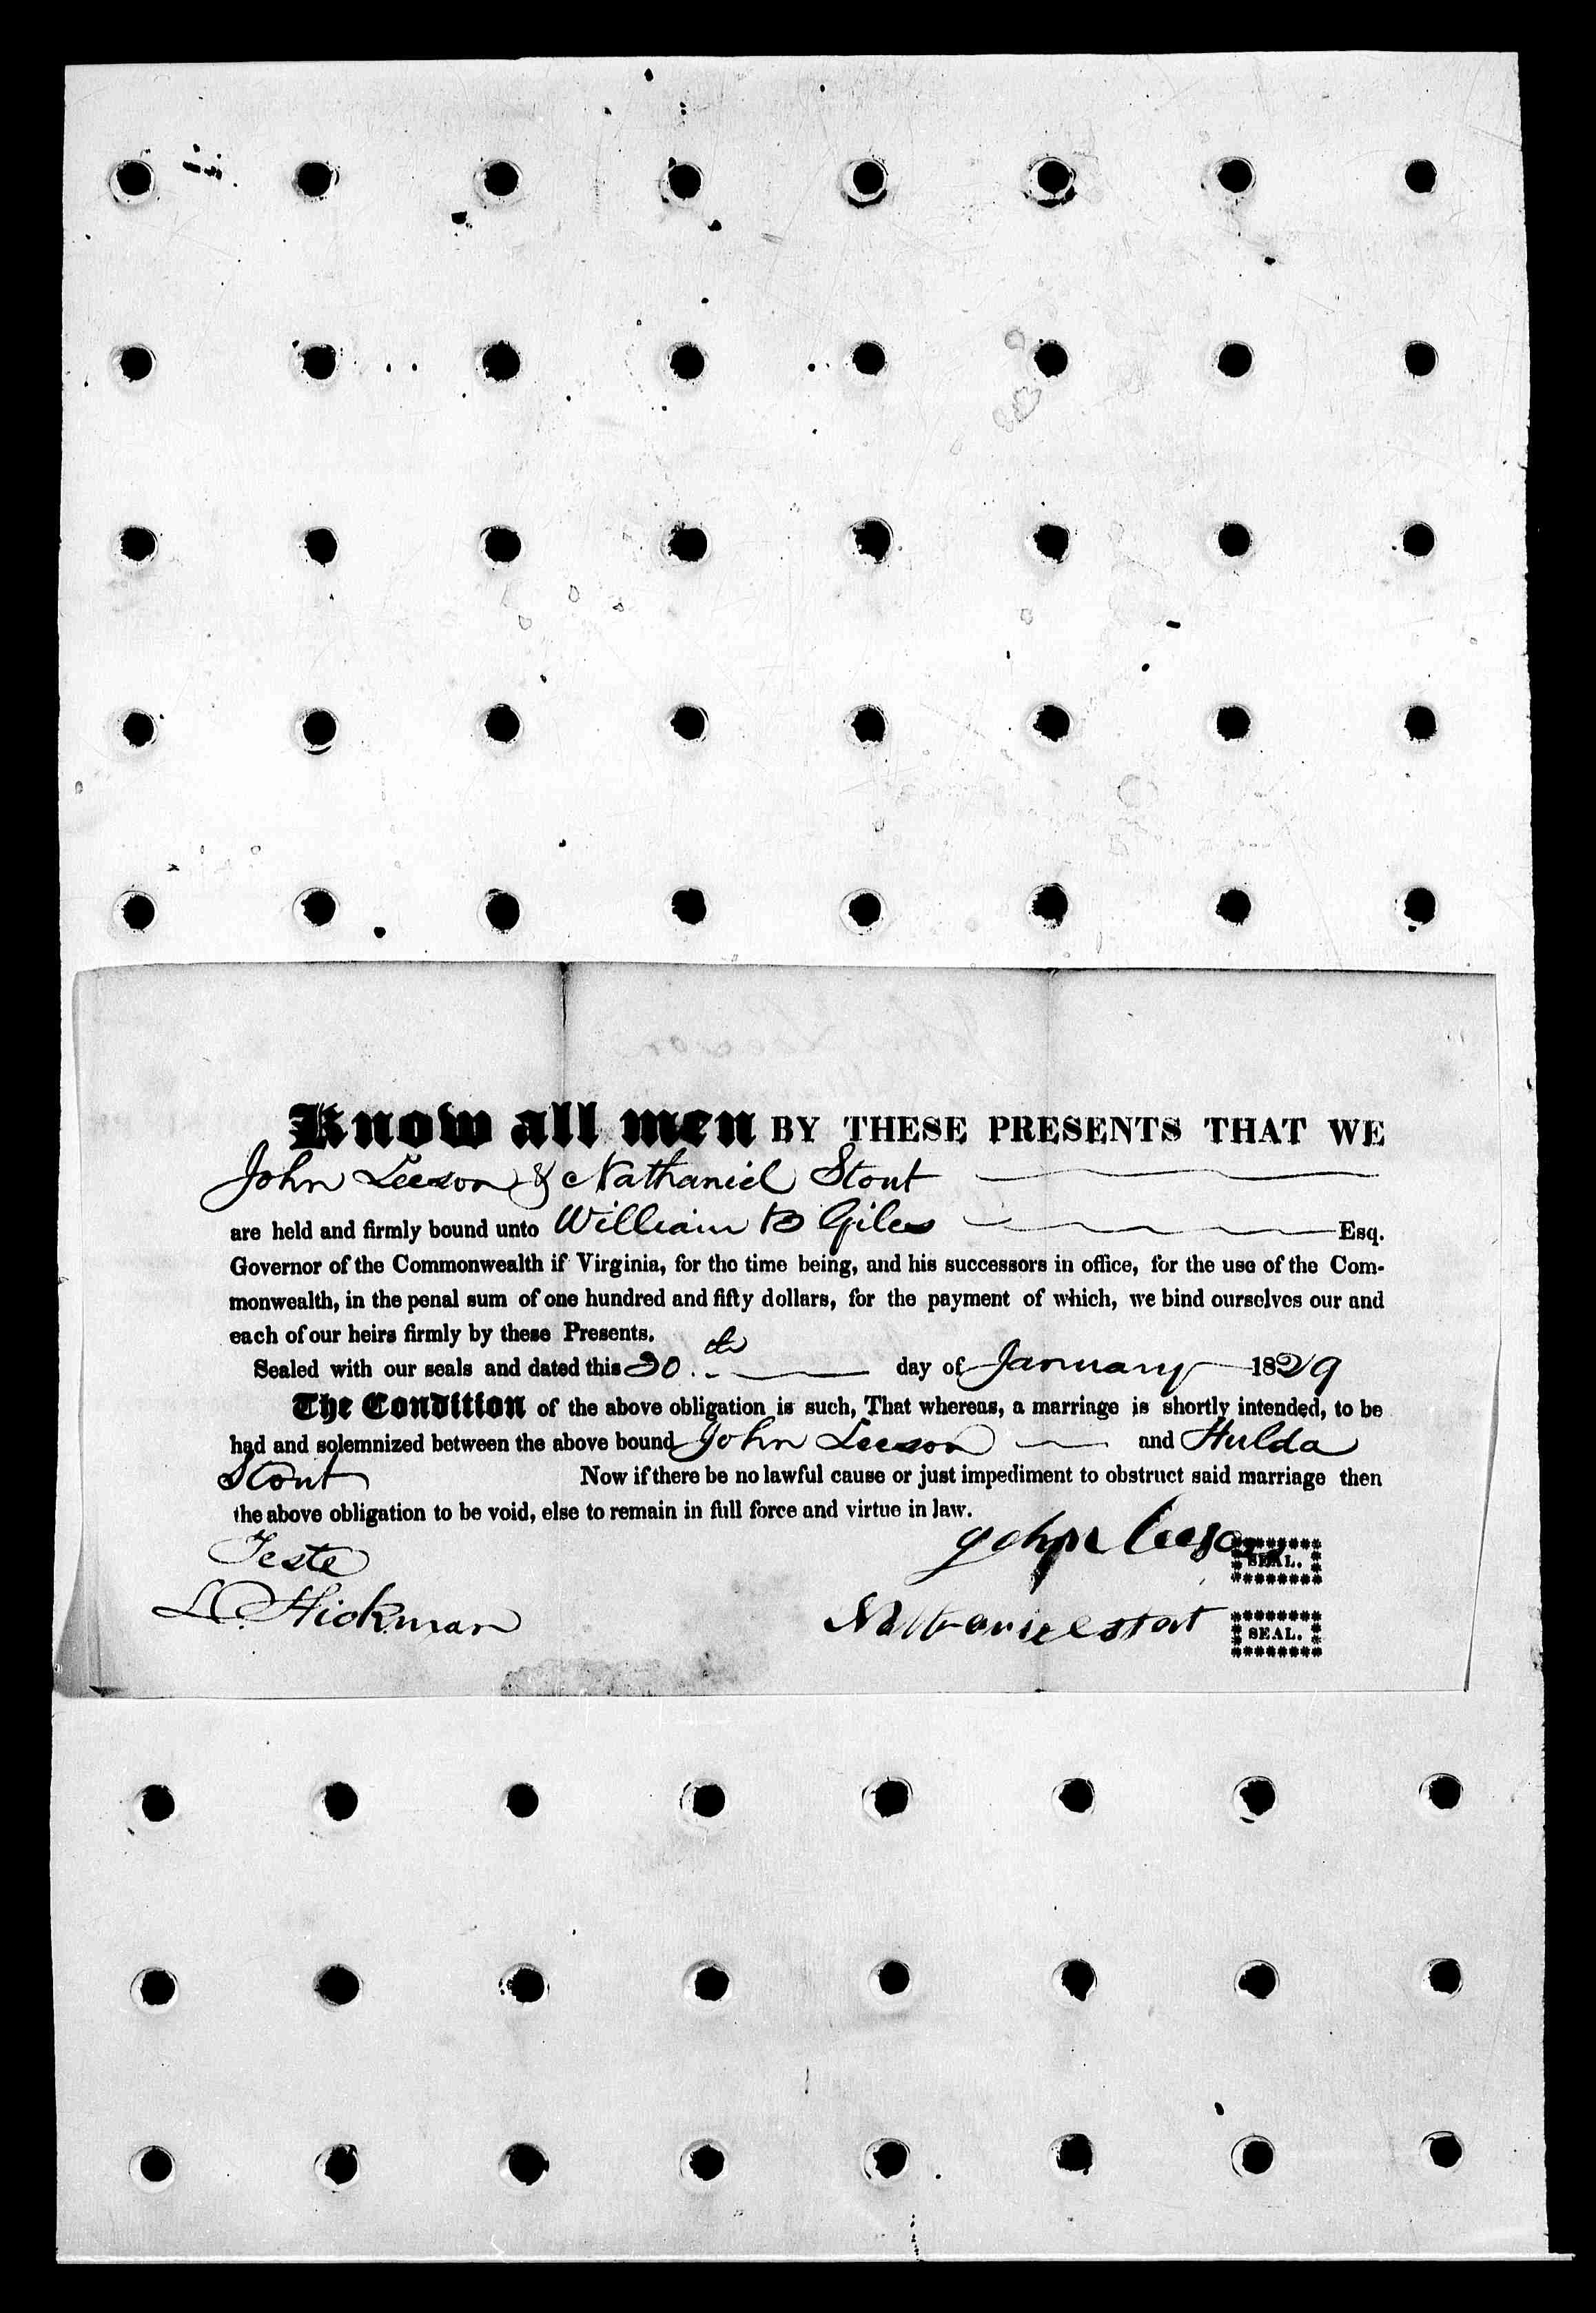 Know all men BY THESE PRESENTS THAT WE
John Leeson & Nathaniel Stout
are held and firmly bound unto William B Giles Esq.
Governor of the Commonwealth if Virginia, for the time being, and his successors in office, for the use of the Com-
monwealth, in the penal sum of one hundred and fifty dollars, for the payment of which, we bind ourselves our and
each of our heirs firmly by these Presents.
Sealed with our seals and dated this 30th day of January 1829
The Condition of the above obligation is such, That whereas, a marriage is shortly intended, to be
had and solemnized between the above bound John Leeson and Hulda
Stout Now if there be no lawful cause or just impediment to obstruct said marriage then
the above obligation to be void, else to remain in full force and virtue in law.
Teste John Leeson SEAL.
Hickman Nathaniel stout SEAL.